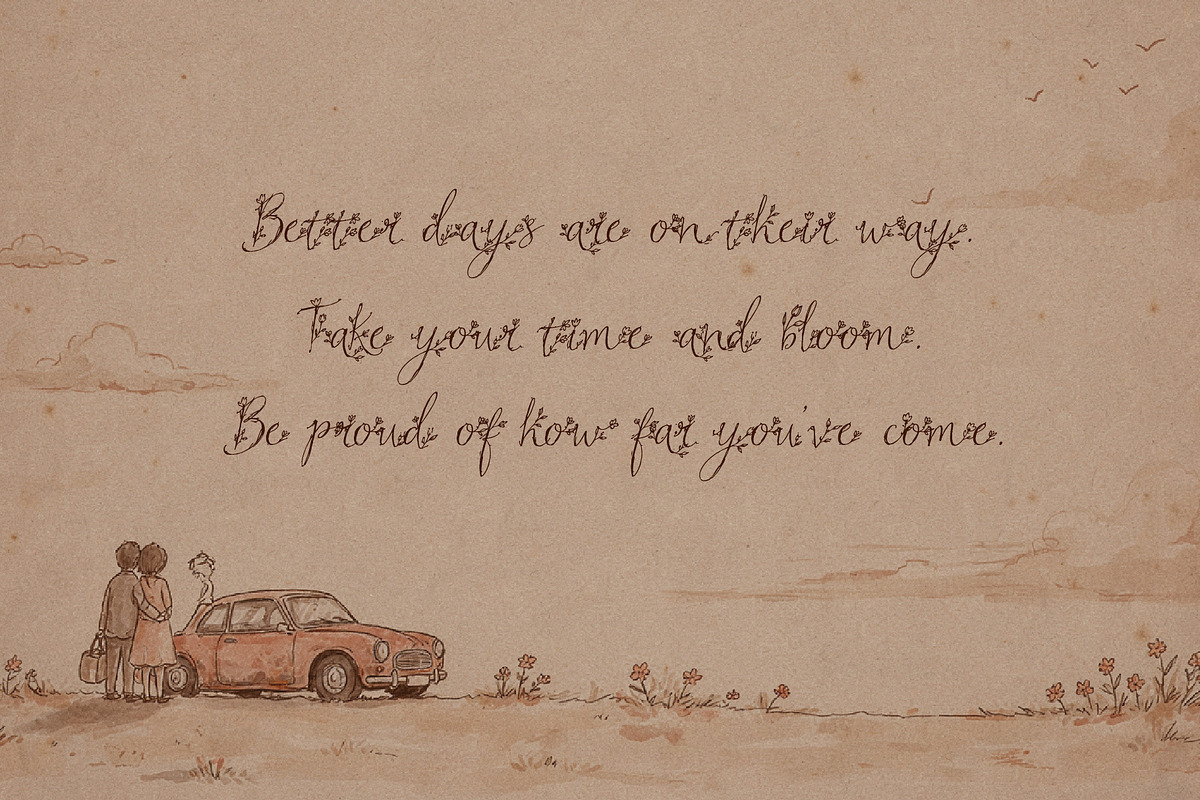 Better days are on their way.
Take your time and bloom.
Be proud of how far you've come.